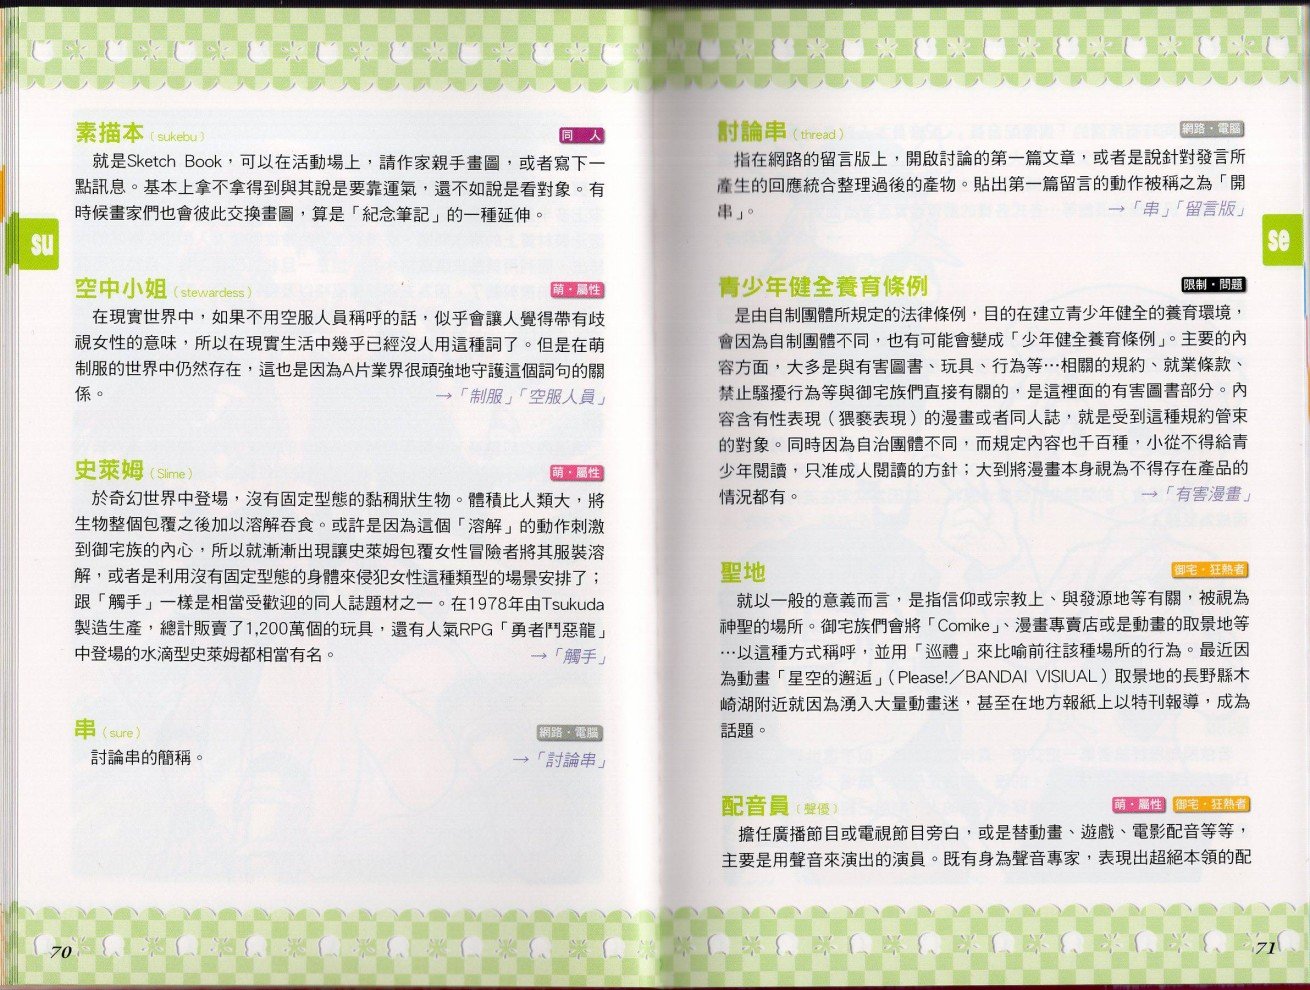 素描本（sukebu） 同　人
就是Sketch Book，可以在活動場上，請作家親手畫圖，或者寫下一
點訊息。基本上拿不拿得到與其說是要靠運氣，還不如說是看對象。有
時候畫家們也會彼此交換畫圖，算是「紀念筆記」的一種延伸。
su
空中小姐（stewardess） 萌・屬性
在現實世界中，如果不用空服人員稱呼的話，似乎會讓人覺得帶有歧
視女性的意味，所以在現實生活中幾乎已經沒人用這種詞了。但是在萌
制服的世界中仍然存在，這也是因為A片業界很頑強地守護這個詞句的關
係。 →「制服」「空服人員」
史萊姆（Slime） 萌・屬性
於奇幻世界中登場，沒有固定型態的黏稠狀生物。體積比人類大，將
生物整個包覆之後加以溶解吞食。或許是因為這個「溶解」的動作刺激
到御宅族的內心，所以就漸漸出現讓史萊姆包覆女性冒險者將其服裝溶
解，或者是利用沒有固定型態的身體來侵犯女性這種類型的場景安排了；
跟「觸手」一樣是相當受歡迎的同人誌題材之一。在1978年由Tsukuda
製造生產，總計販賣了1,200萬個的玩具，還有人氣RPG「勇者鬥惡龍」
中登場的水滴型史萊姆都相當有名。 →「觸手」
串（sure） 網路・電腦
討論串的簡稱。 →「討論串」
70
討論串（thread） 網路・電腦
指在網路的留言版上，開啟討論的第一篇文章，或者是說針對發言所
產生的回應統合整理過後的產物。貼出第一篇留言的動作被稱之為「開
串」。 →「串」「留言版」
se
青少年健全養育條例 限制・問題
是由自制團體所規定的法律條例，目的在建立青少年健全的養育環境，
會因為自制團體不同，也有可能會變成「少年健全養育條例」。主要的內
容方面，大多是與有害圖書、玩具、行為等…相關的規約、就業條款、
禁止騷擾行為等與御宅族們直接有關的，是這裡面的有害圖書部分。內
容含有性表現（猥褻表現）的漫畫或者同人誌，就是受到這種規約管束
的對象。同時因為自治團體不同，而規定內容也千百種，小從不得給青
少年閱讀，只准成人閱讀的方針；大到將漫畫本身視為不得存在產品的
情況都有。 →「有害漫畫」
聖地 御宅・狂熱者
就以一般的意義而言，是指信仰或宗教上、與發源地等有關，被視為
神聖的場所。御宅族們會將「Comike」、漫畫專賣店或是動畫的取景地等
…以這種方式稱呼，並用「巡禮」來比喻前往該種場所的行為。最近因
為動畫「星空的邂逅」（Please!／BANDAI VISIUAL）取景地的長野縣木
崎湖附近就因為湧入大量動畫迷，甚至在地方報紙上以特刊報導，成為
話題。
配音員（聲優） 萌・屬性 御宅・狂熱者
擔任廣播節目或電視節目旁白，或是替動畫、遊戲、電影配音等等，
主要是用聲音來演出的演員。既有身為聲音專家，表現出超絕本領的配
71